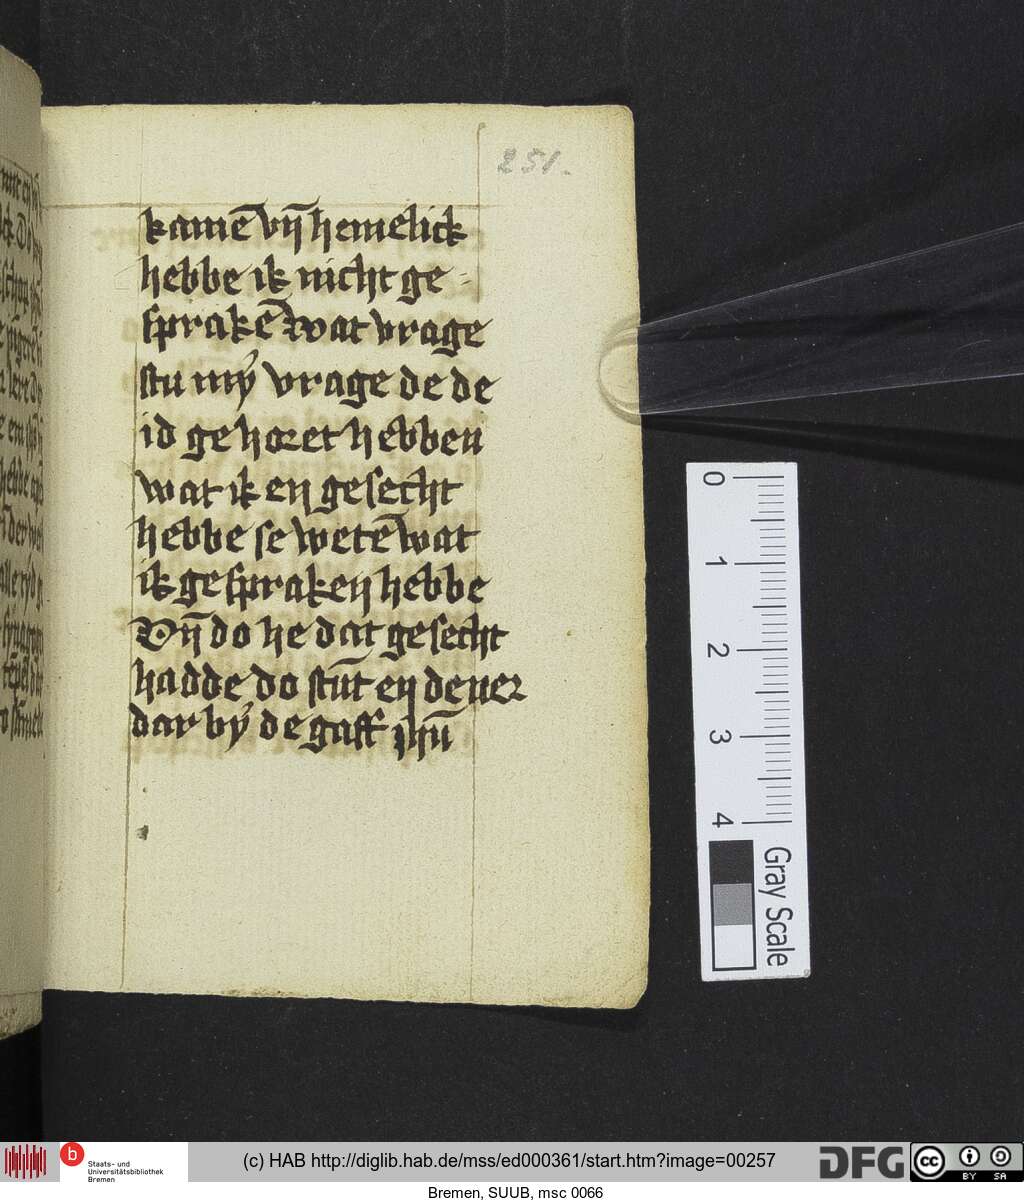 251.
kamē vn̄ hemelick
hebbe ik nicht ge-
sprakē wat vrage
stu mÿ vrage de de
id gehoret hebben
wat ik en gesecht
hebbe se wetē wat
ik gespraken hebbe
Vn̄ do he dat gesecht
hadde do stūt en dener
dar bÿ de gaff
0
1
2
3
4
Gray Scale
Staats- und
Universitätsbibliothek
Bremen
(c) HAB http://diglib.hab.de/mss/ed000361/start.htm?image=00257
DFG
cc BY SA
Bremen, SUUB, msc 0066